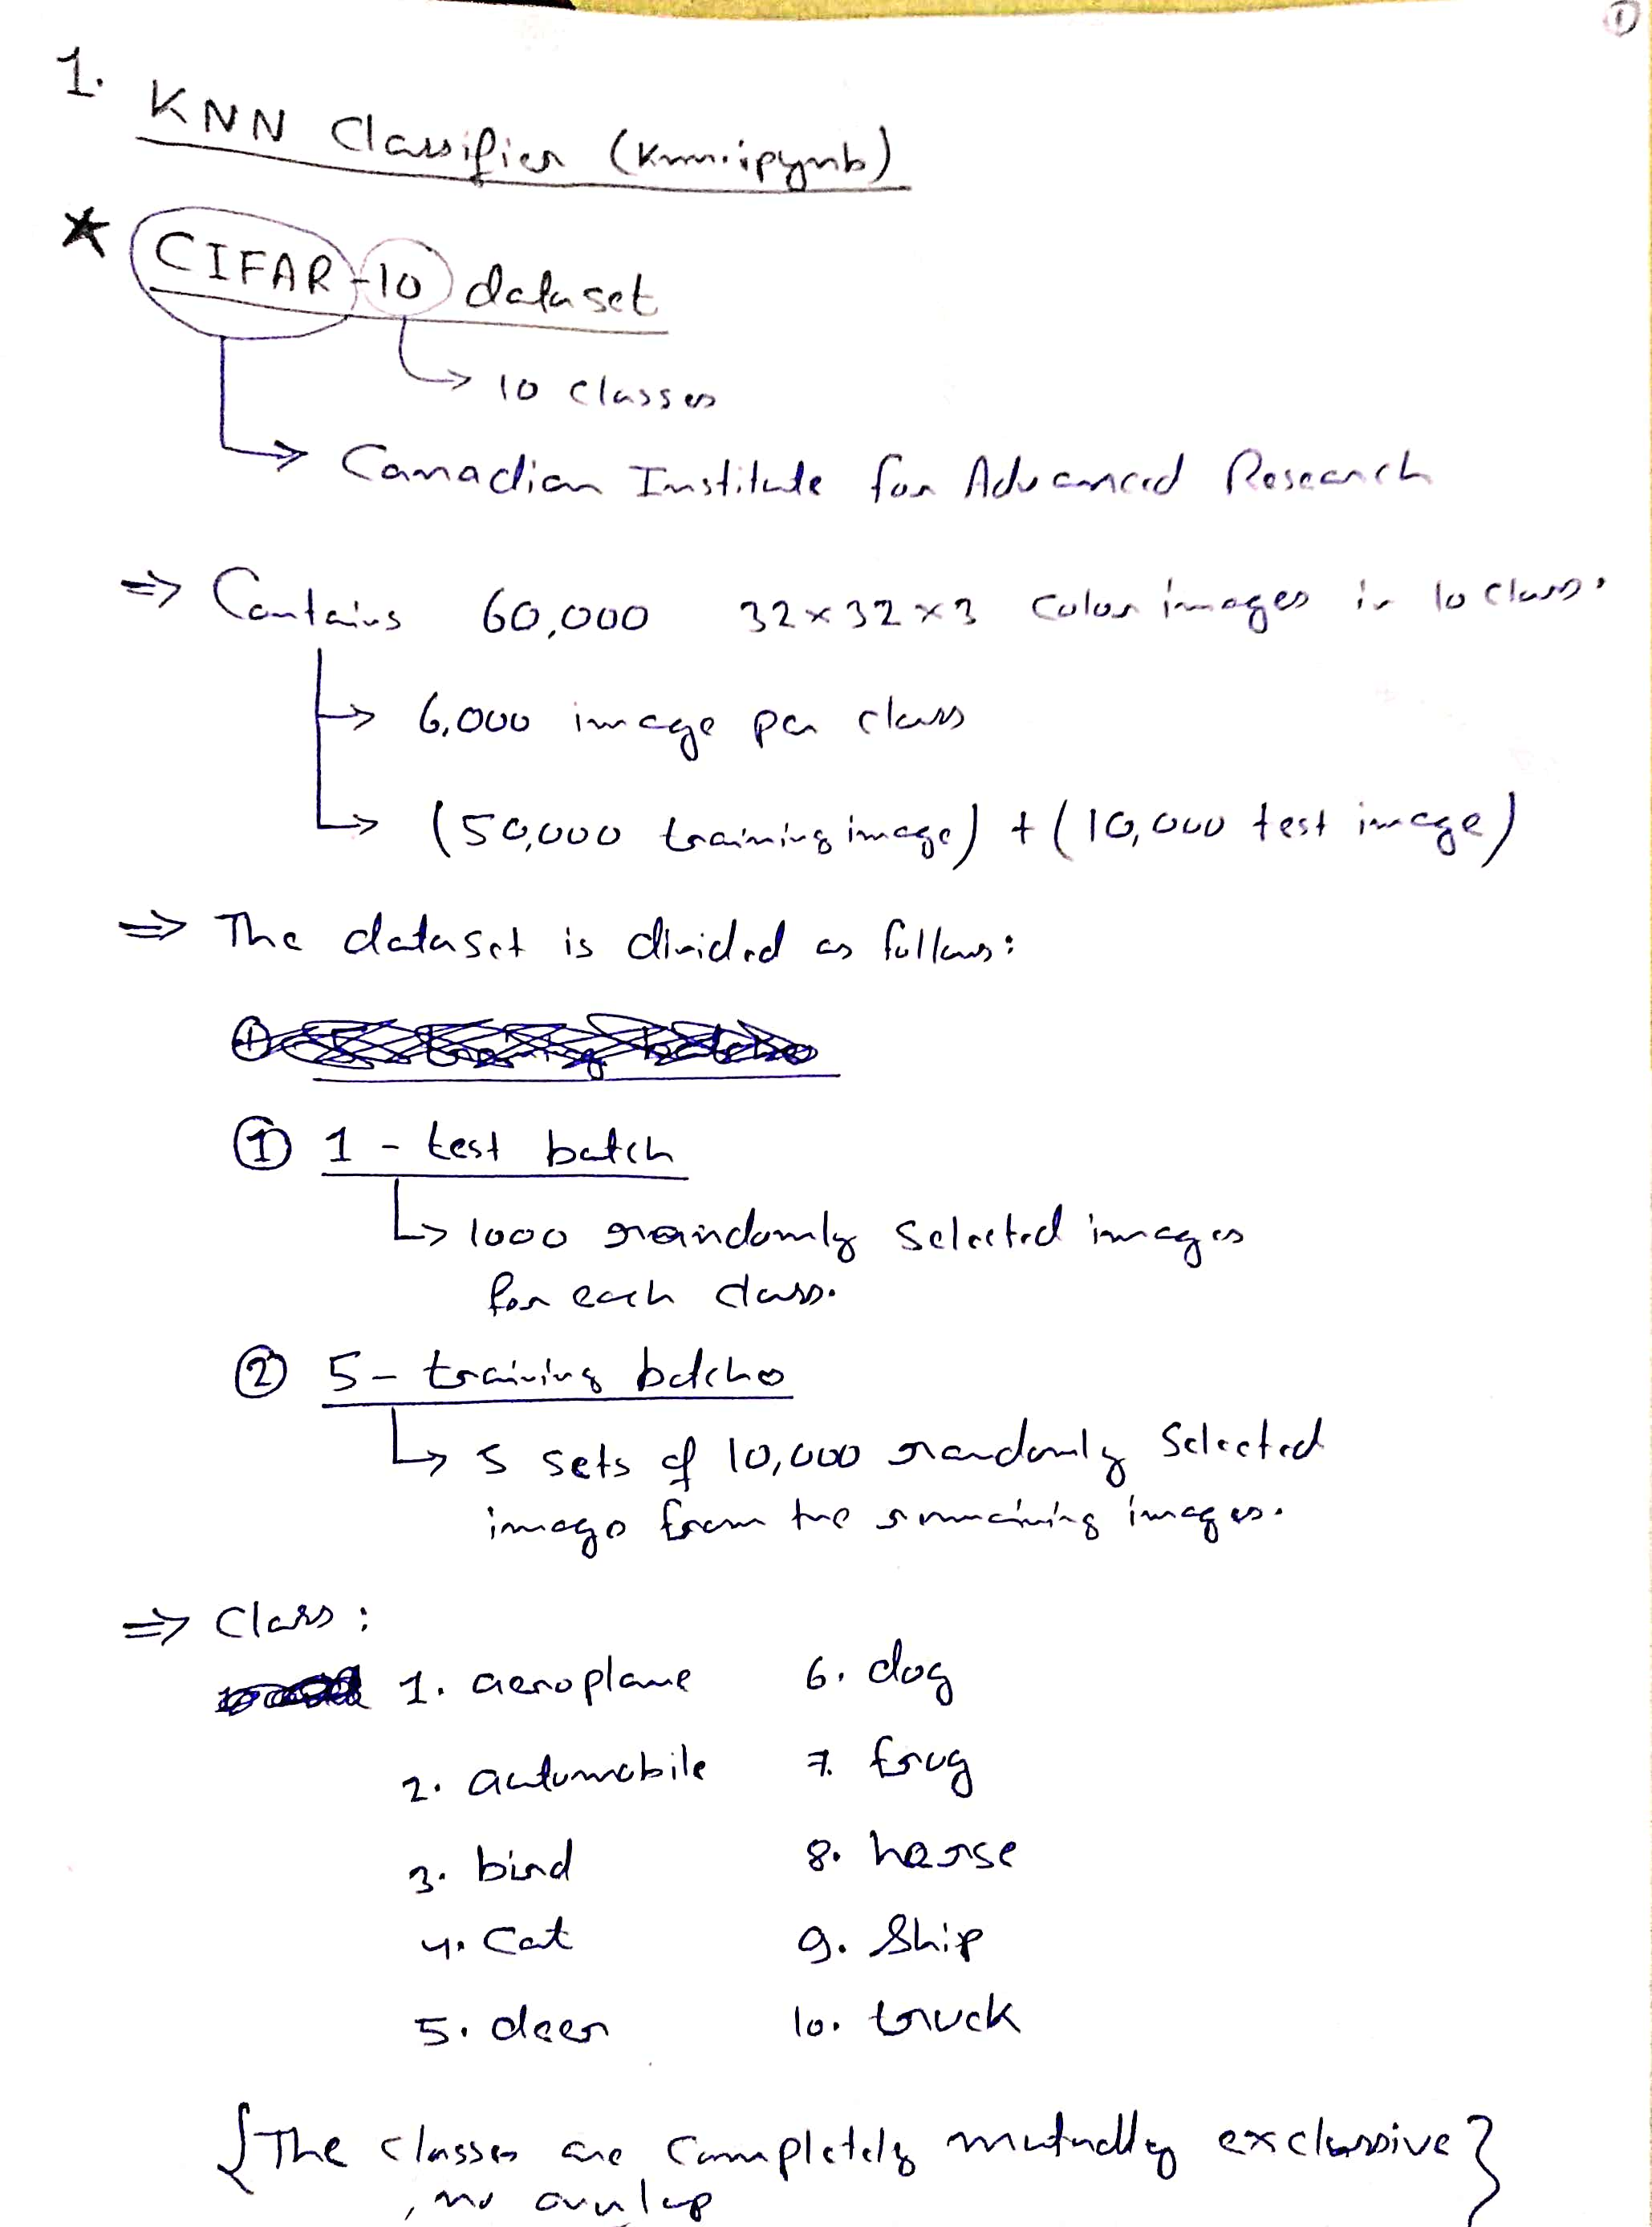 ①
1. KNN Classifier (knn.ipynb)
★ CIFAR-10 dataset
→ 10 classes
→ Canadian Institute for Advanced Research
⇒ Contains 60,000 32×32×3 color images in 10 class.
→ 6,000 image per class
→ (50,000 training image) + (10,000 test image)
⇒ The dataset is divided as follows:
① 1 - test batch
→ 1000 randomly selected images
for each class.
② 5 - training batches
→ 5 sets of 10,000 randomly selected
images from the remaining images.
⇒ Class:
1. aeroplane 6. dog
2. automobile 7. frog
3. bird 8. horse
4. cat 9. ship
5. deer 10. truck
{The classes are completely mutually exclusive}
, no overlap